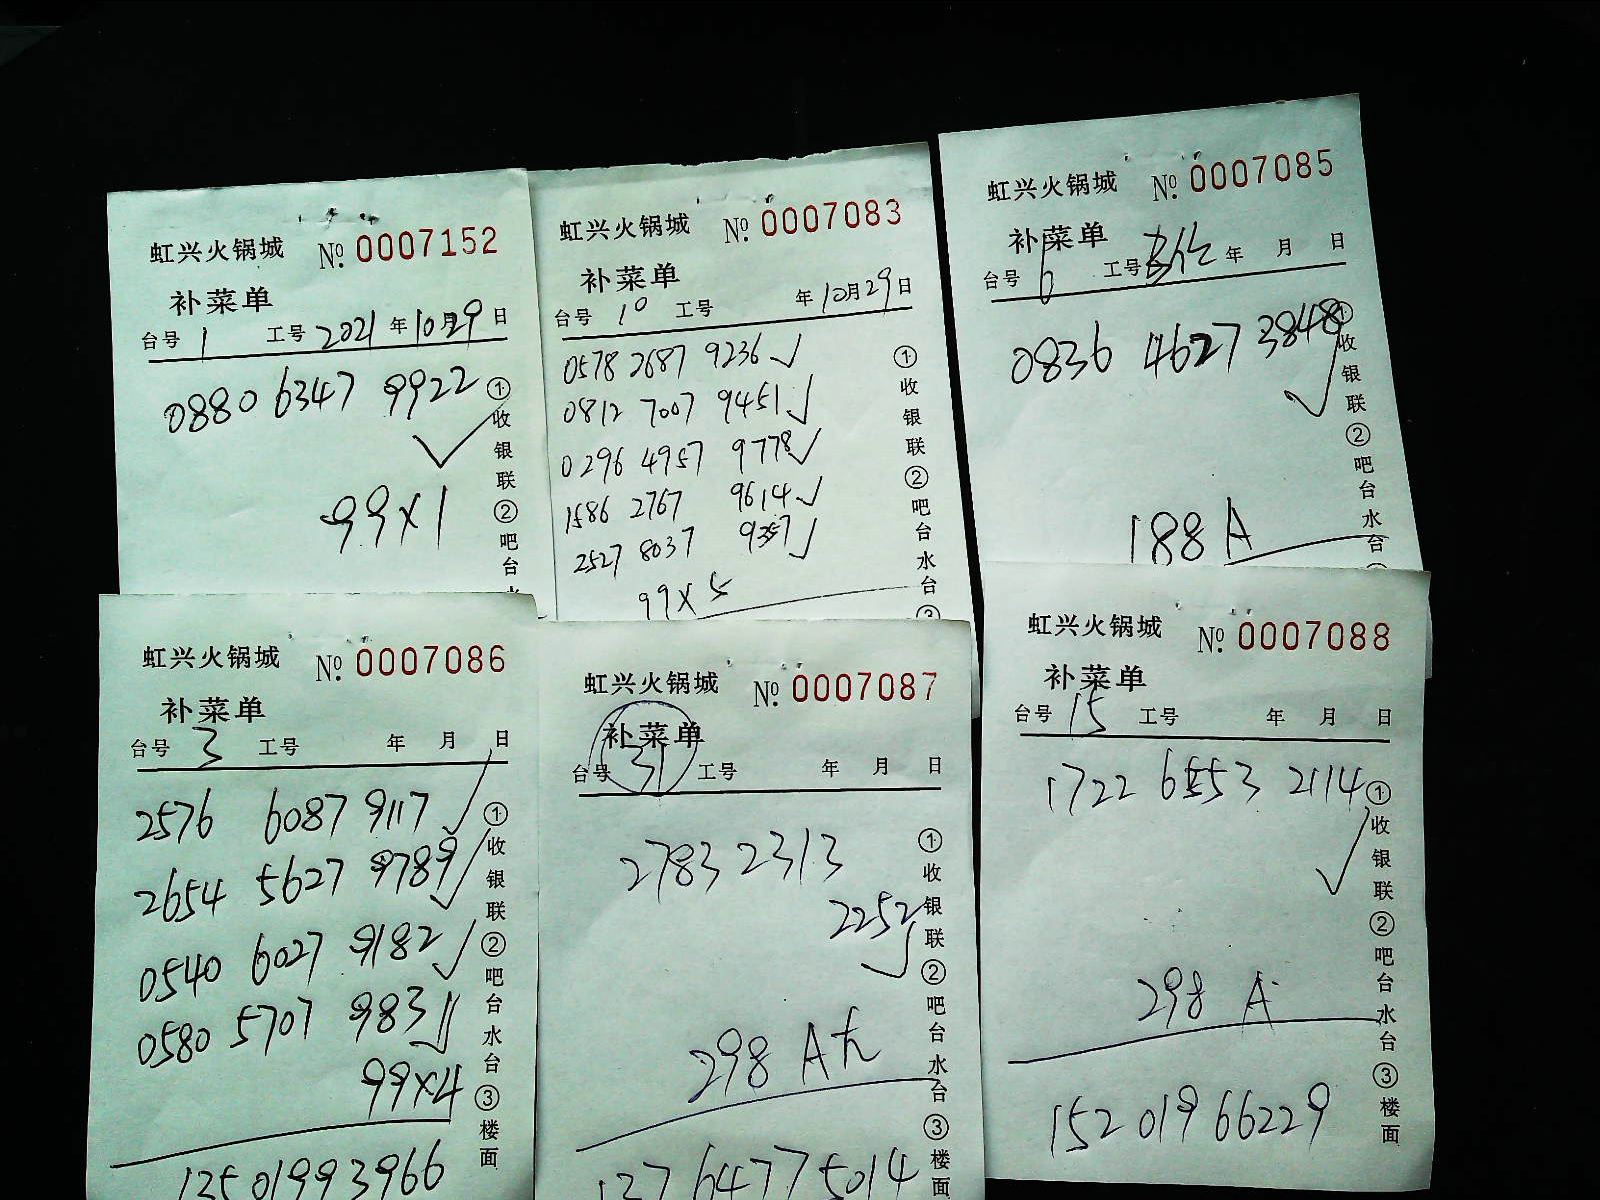 虹兴火锅城 №. 0007152
补菜单
台号 1 工号 2021 年 10 月 29 日
0880 6347 9922
99×1
①收银联②吧台
虹兴火锅城 №. 0007083
补菜单
台号 10 工号 年 10 月 29 日
0578 2687 9236
0812 7007 9451
0296 4957 9778
1586 2767 9614
2527 8037 9357
99×5
①收银联②吧台水台③
虹兴火锅城 №. 0007085
补菜单
台号 6 工号 年 月 日
0836 4627 3848
188 A
①收银联②吧台水台
虹兴火锅城 №. 0007086
补菜单
台号 3 工号 年 月 日
2576 6087 9117
2654 5627 9789
0540 6027 9182
0580 5707 9831
99×4
13501993966
①收银联②吧台水台③楼面
虹兴火锅城 №. 0007087
补菜单
台号 31 工号 年 月 日
2783 2313
2252
298 A
137 6477 5014
①收银联②吧台水台③楼面
虹兴火锅城 №. 0007088
补菜单
台号 15 工号 年 月 日
1722 6553 2114
298 A
152 019 66229
①收银联②吧台水台③楼面